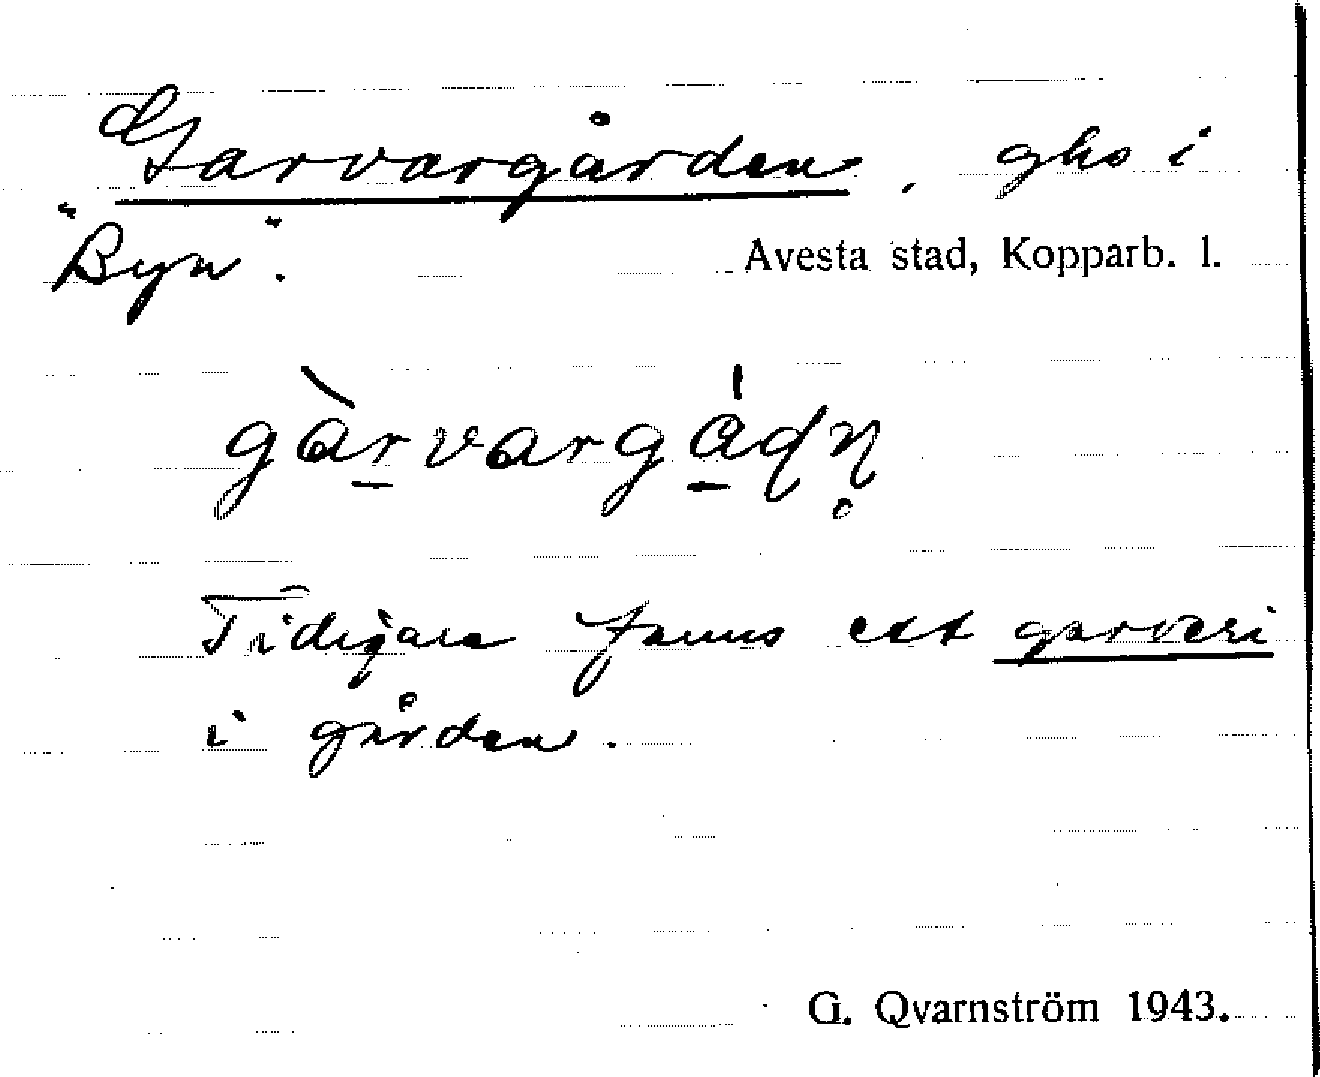 Garvargården, ghs i
"Byn".
Avesta stad, Kopparb. l.
gàrvargáɖn̥
Tidigare fanns ett garveri
i gården.
G. Qvarnström 1943.